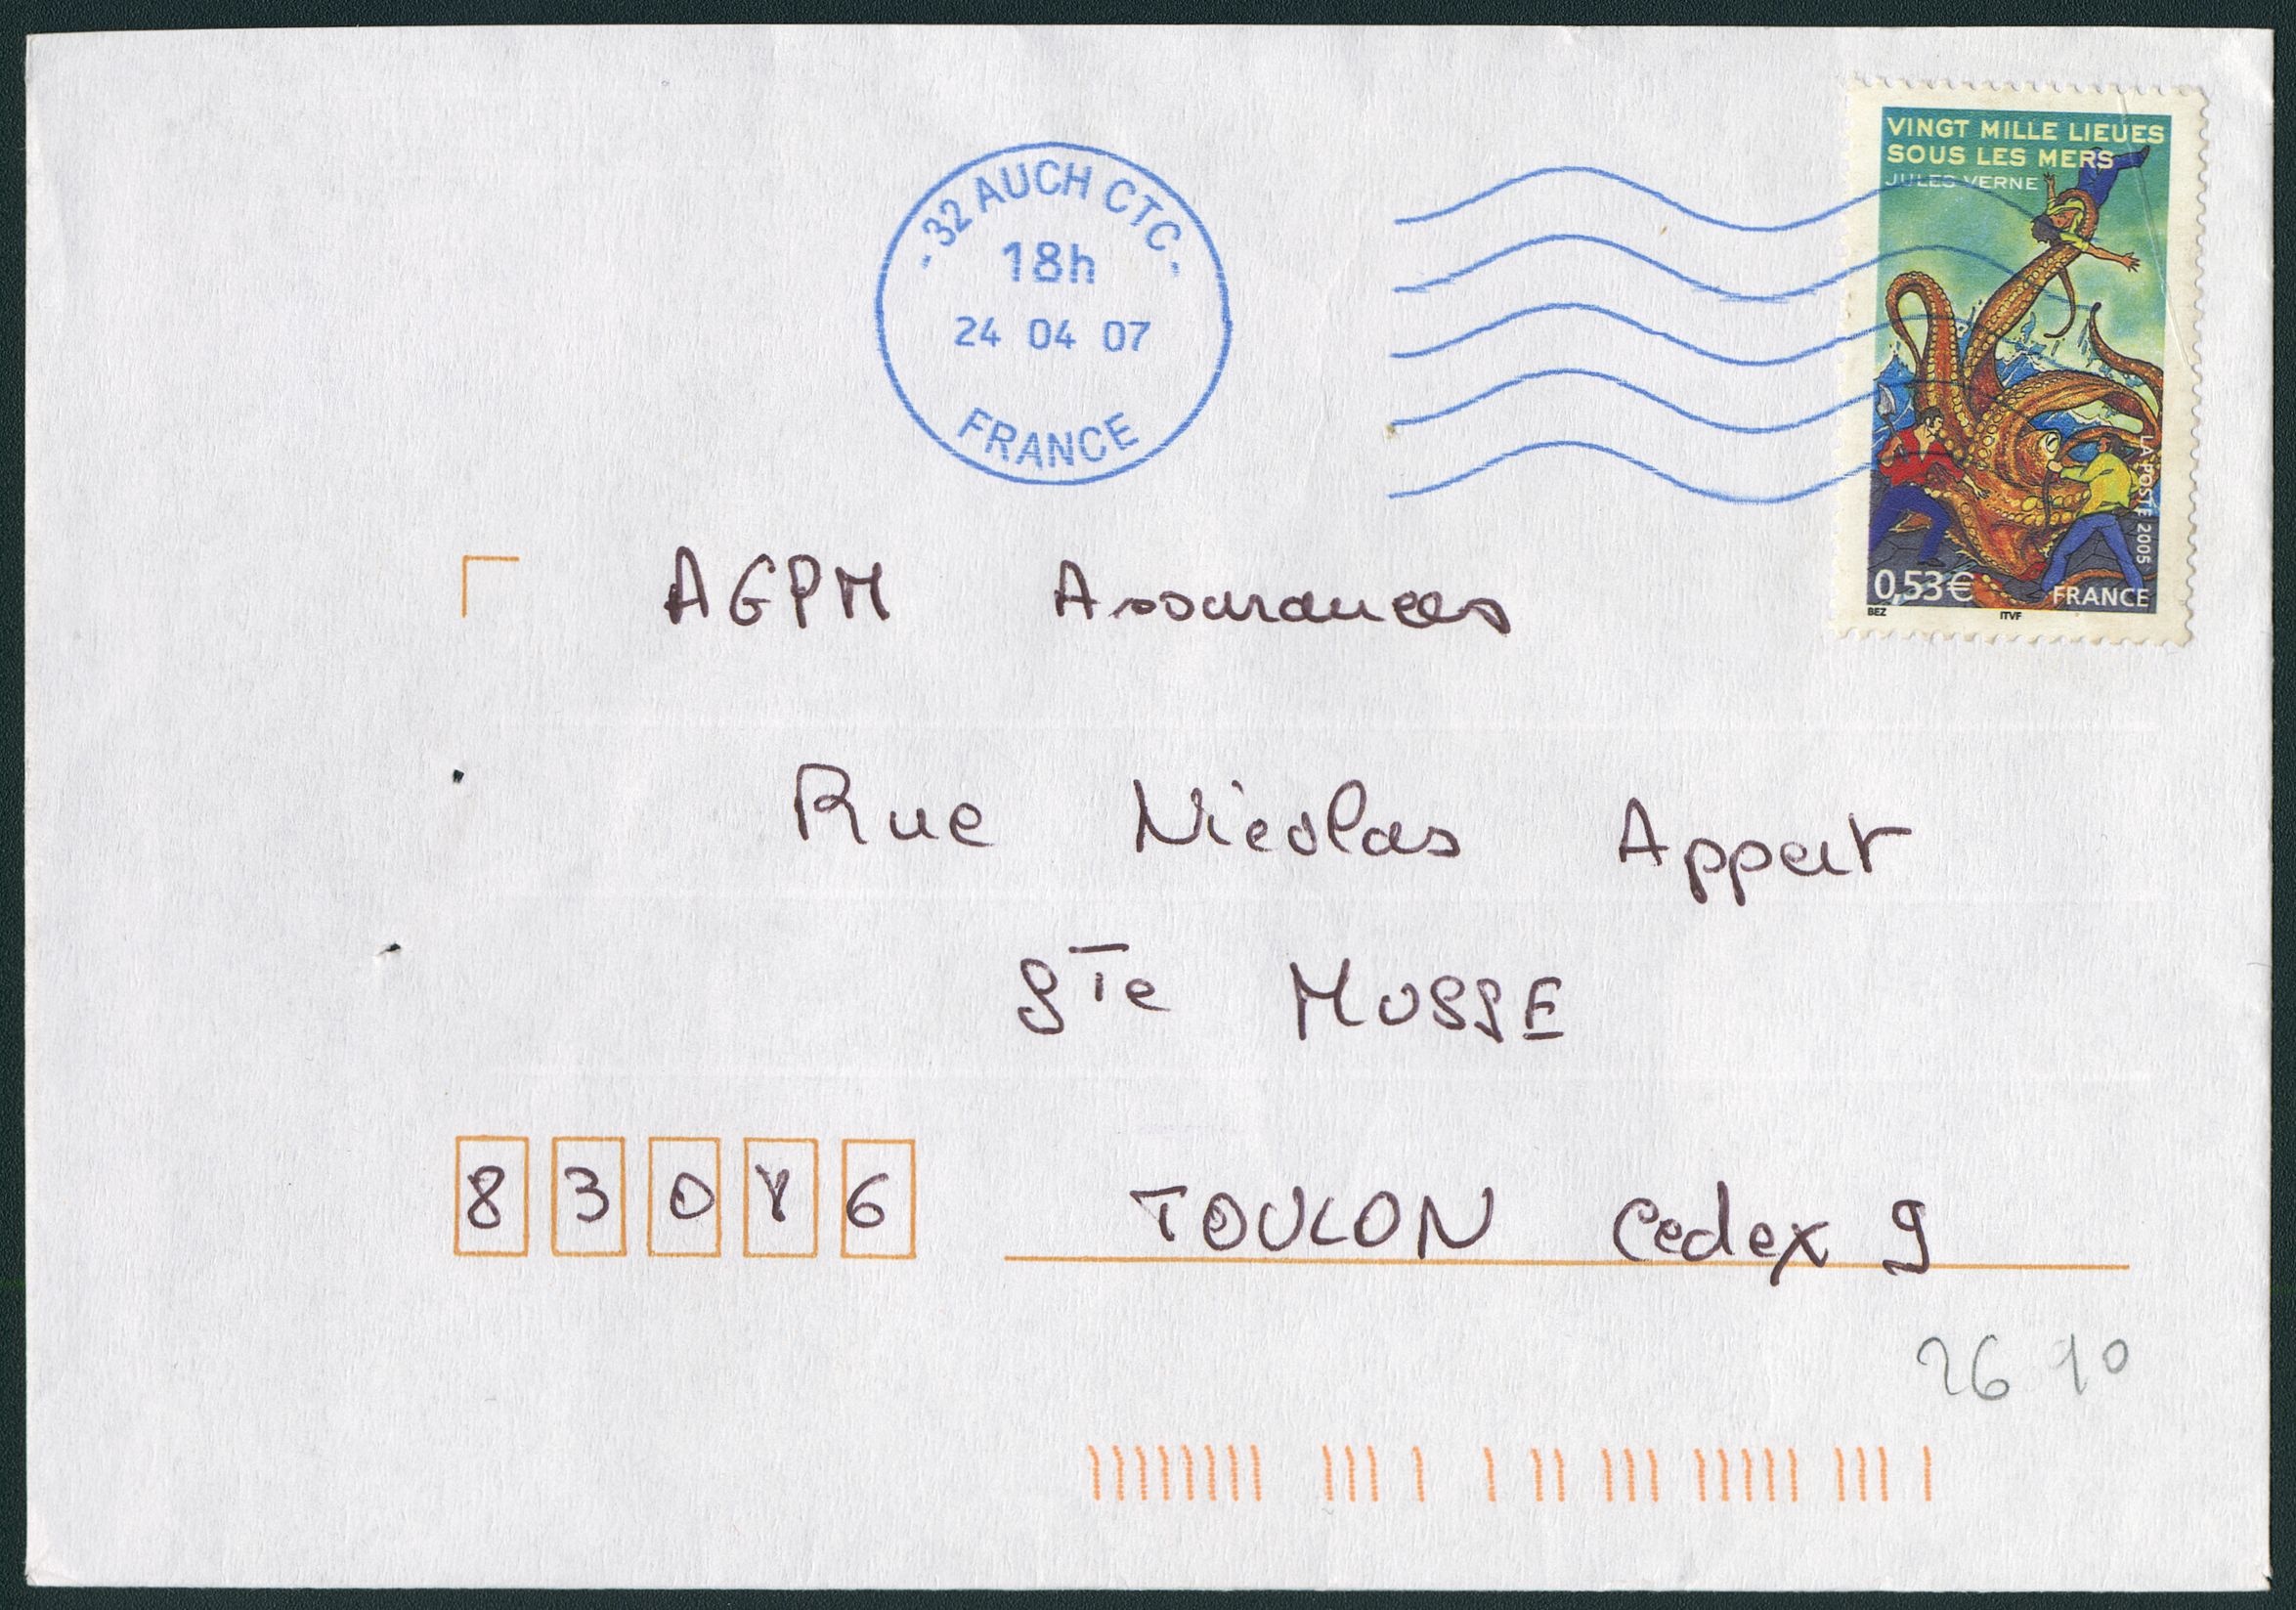 VINGT MILLE LIEUES
SOUS LES MERS
JULES VERNE
-32 AUCH CTC-
18h
24 04 07
FRANCE
LA POSTE 2005
0,53€ FRANCE
BEZ ITVF
AGPM Assurances
Rue Nicolas Appert
STe MUSSE
83086 TOULON Cedex 9
26 10